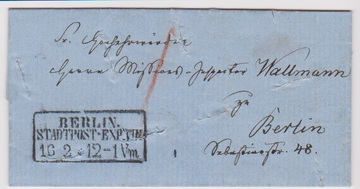 Sr. Hochehrwürden
Herrn Missions-Inspector Wallmann
zu
Berlin
Sebastianstr. 48.
BERLIN.
STADTPOST-EXP.
16 2 * 12-1 Vm